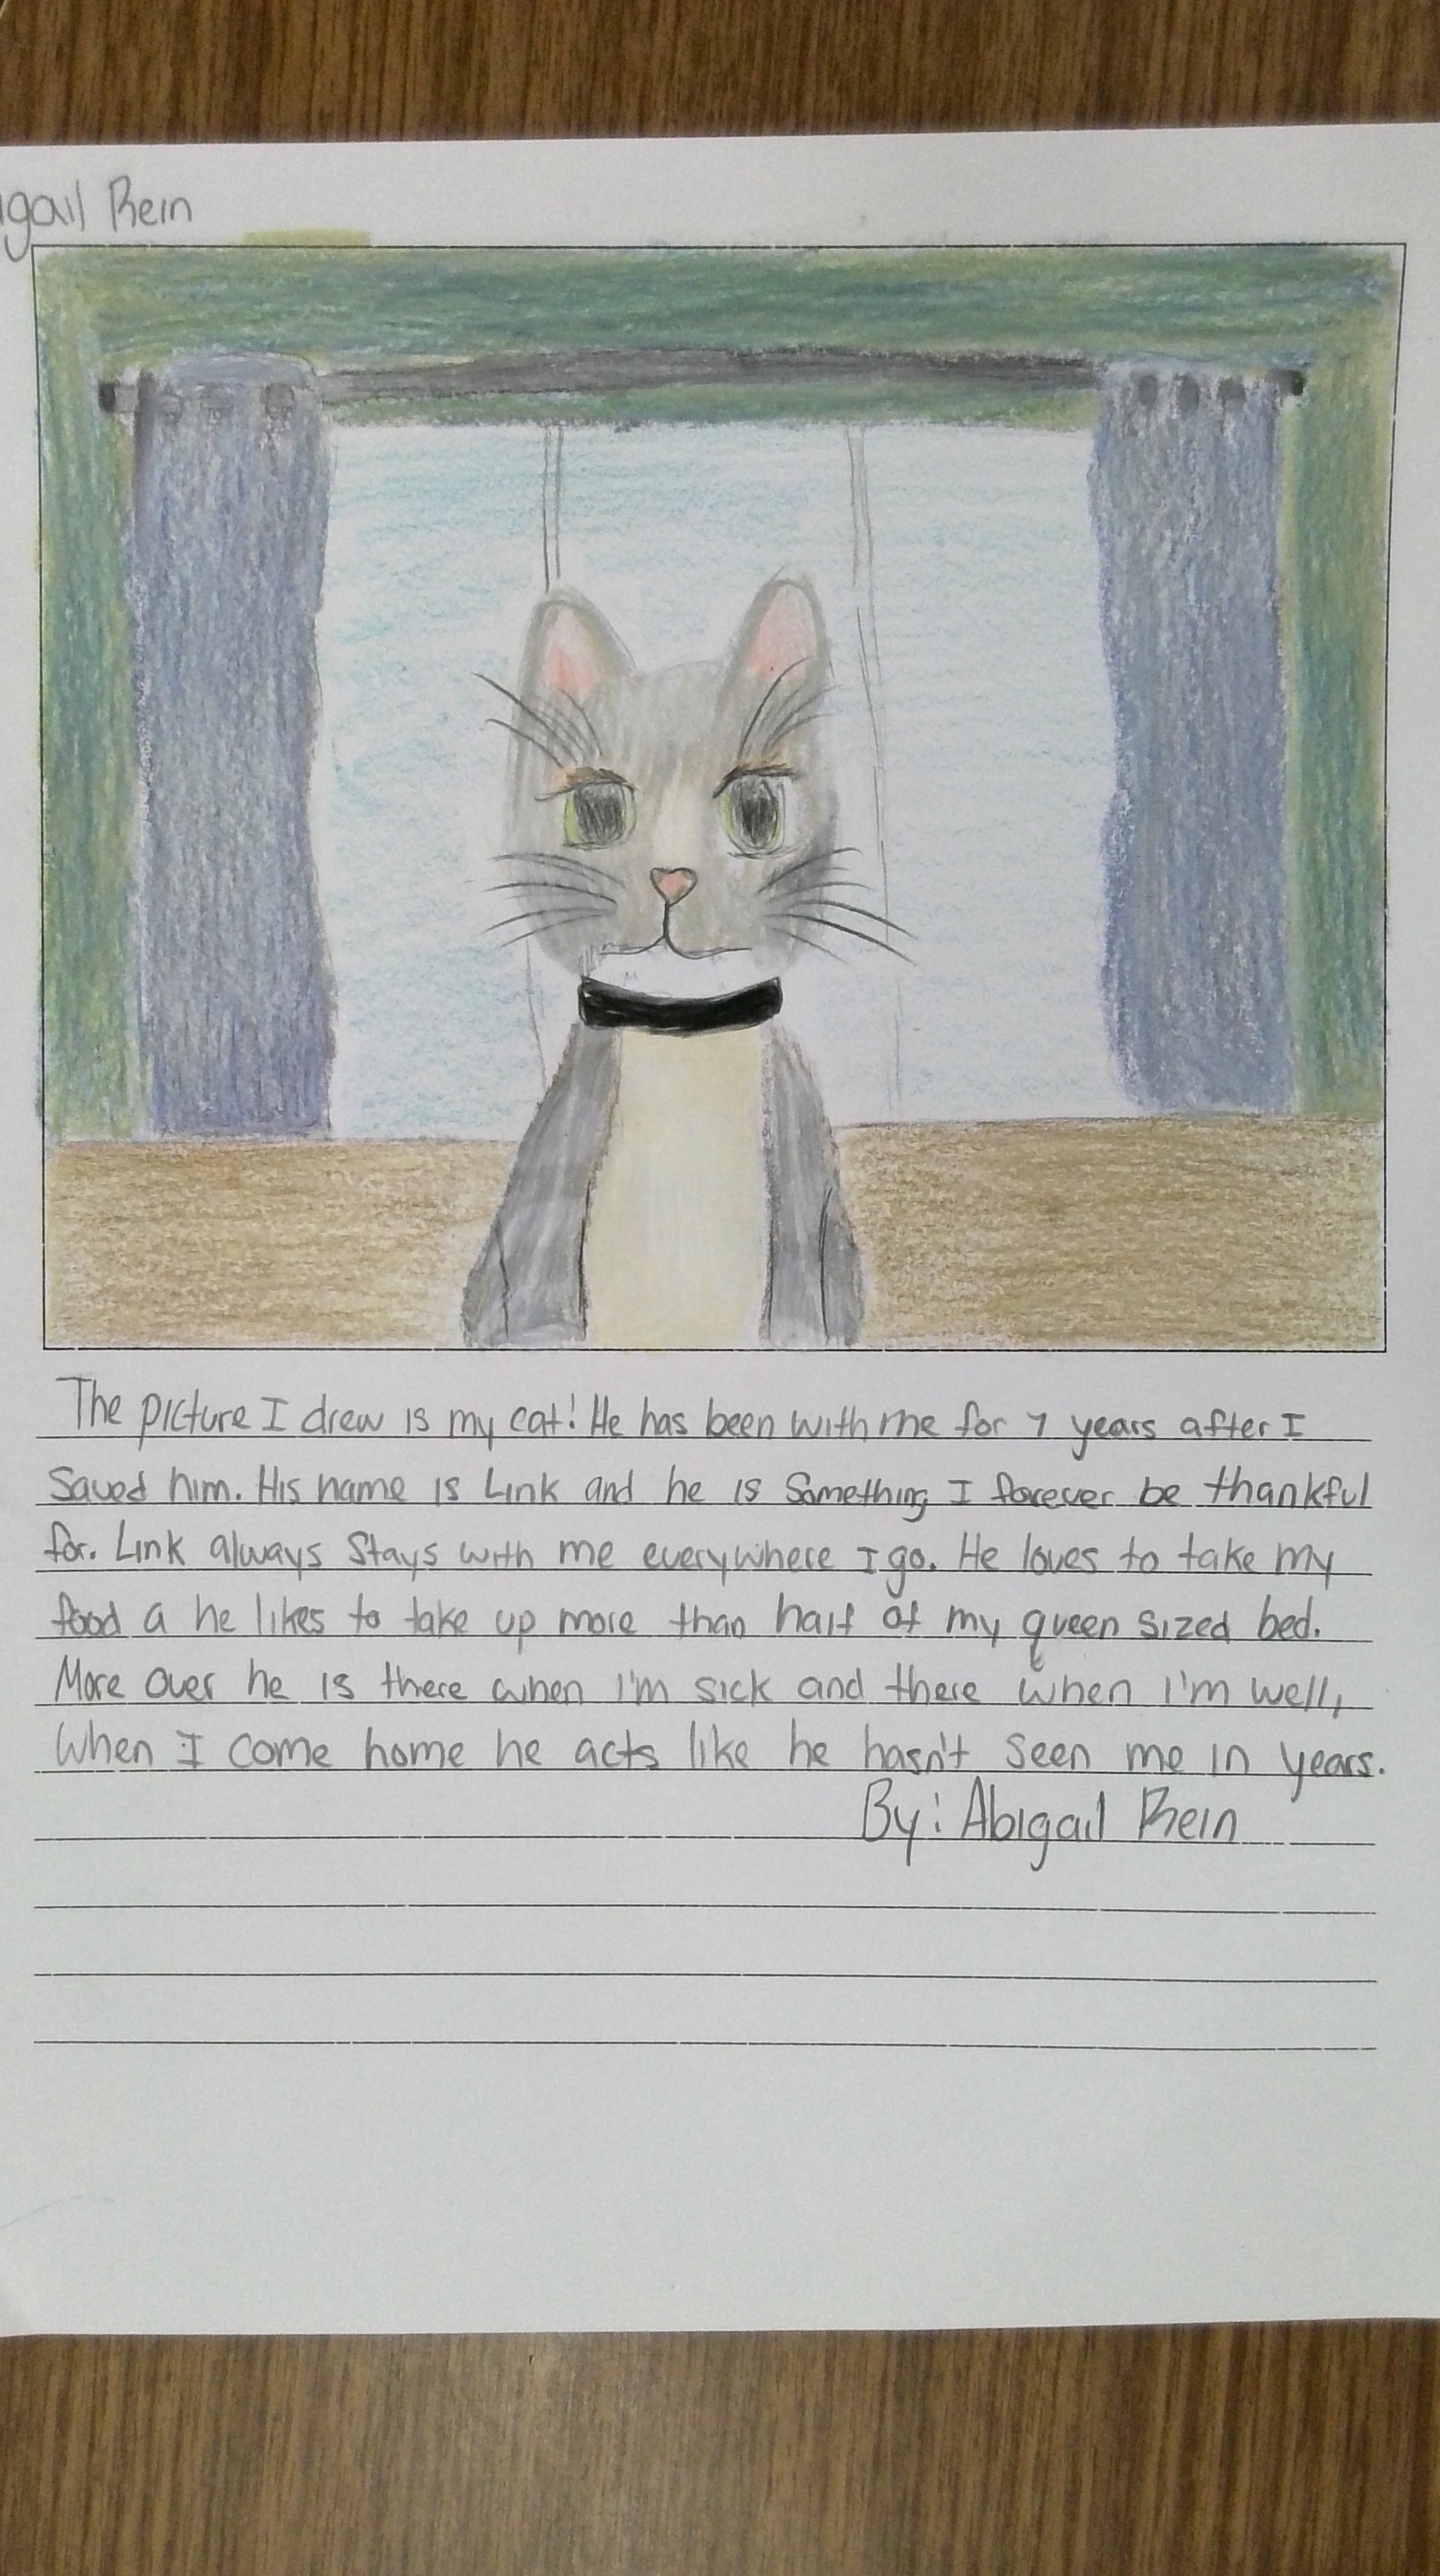 igail Rein
The picture I drew is my cat! He has been with me for 7 years after I
saved him. His name is Link and he is something I forever be thankful
for. Link always stays with me everywhere I go. He loves to take my
food a he likes to take up more than half of my queen sized bed.
More over he is there when I'm sick and there when I'm well,
When I come home he acts like he hasn't seen me in years.
By: Abigail Rein